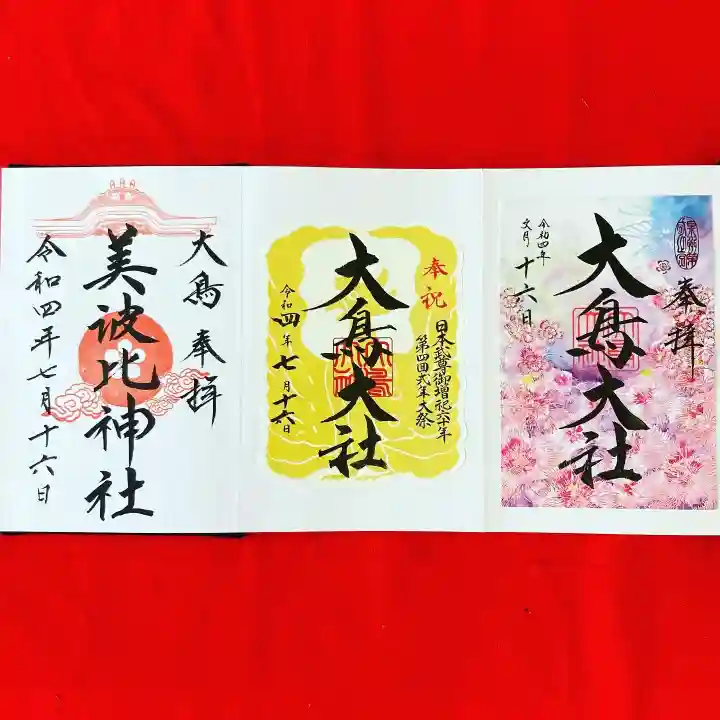 大鳥 奉拝
美波比神社
令和四年七月十六日
奉祝
日本武尊御増祀六十年
第四回式年大祭
大鳥大社
令和四年七月十六日
奉拝
大鳥大社
令和四年
文月十六日